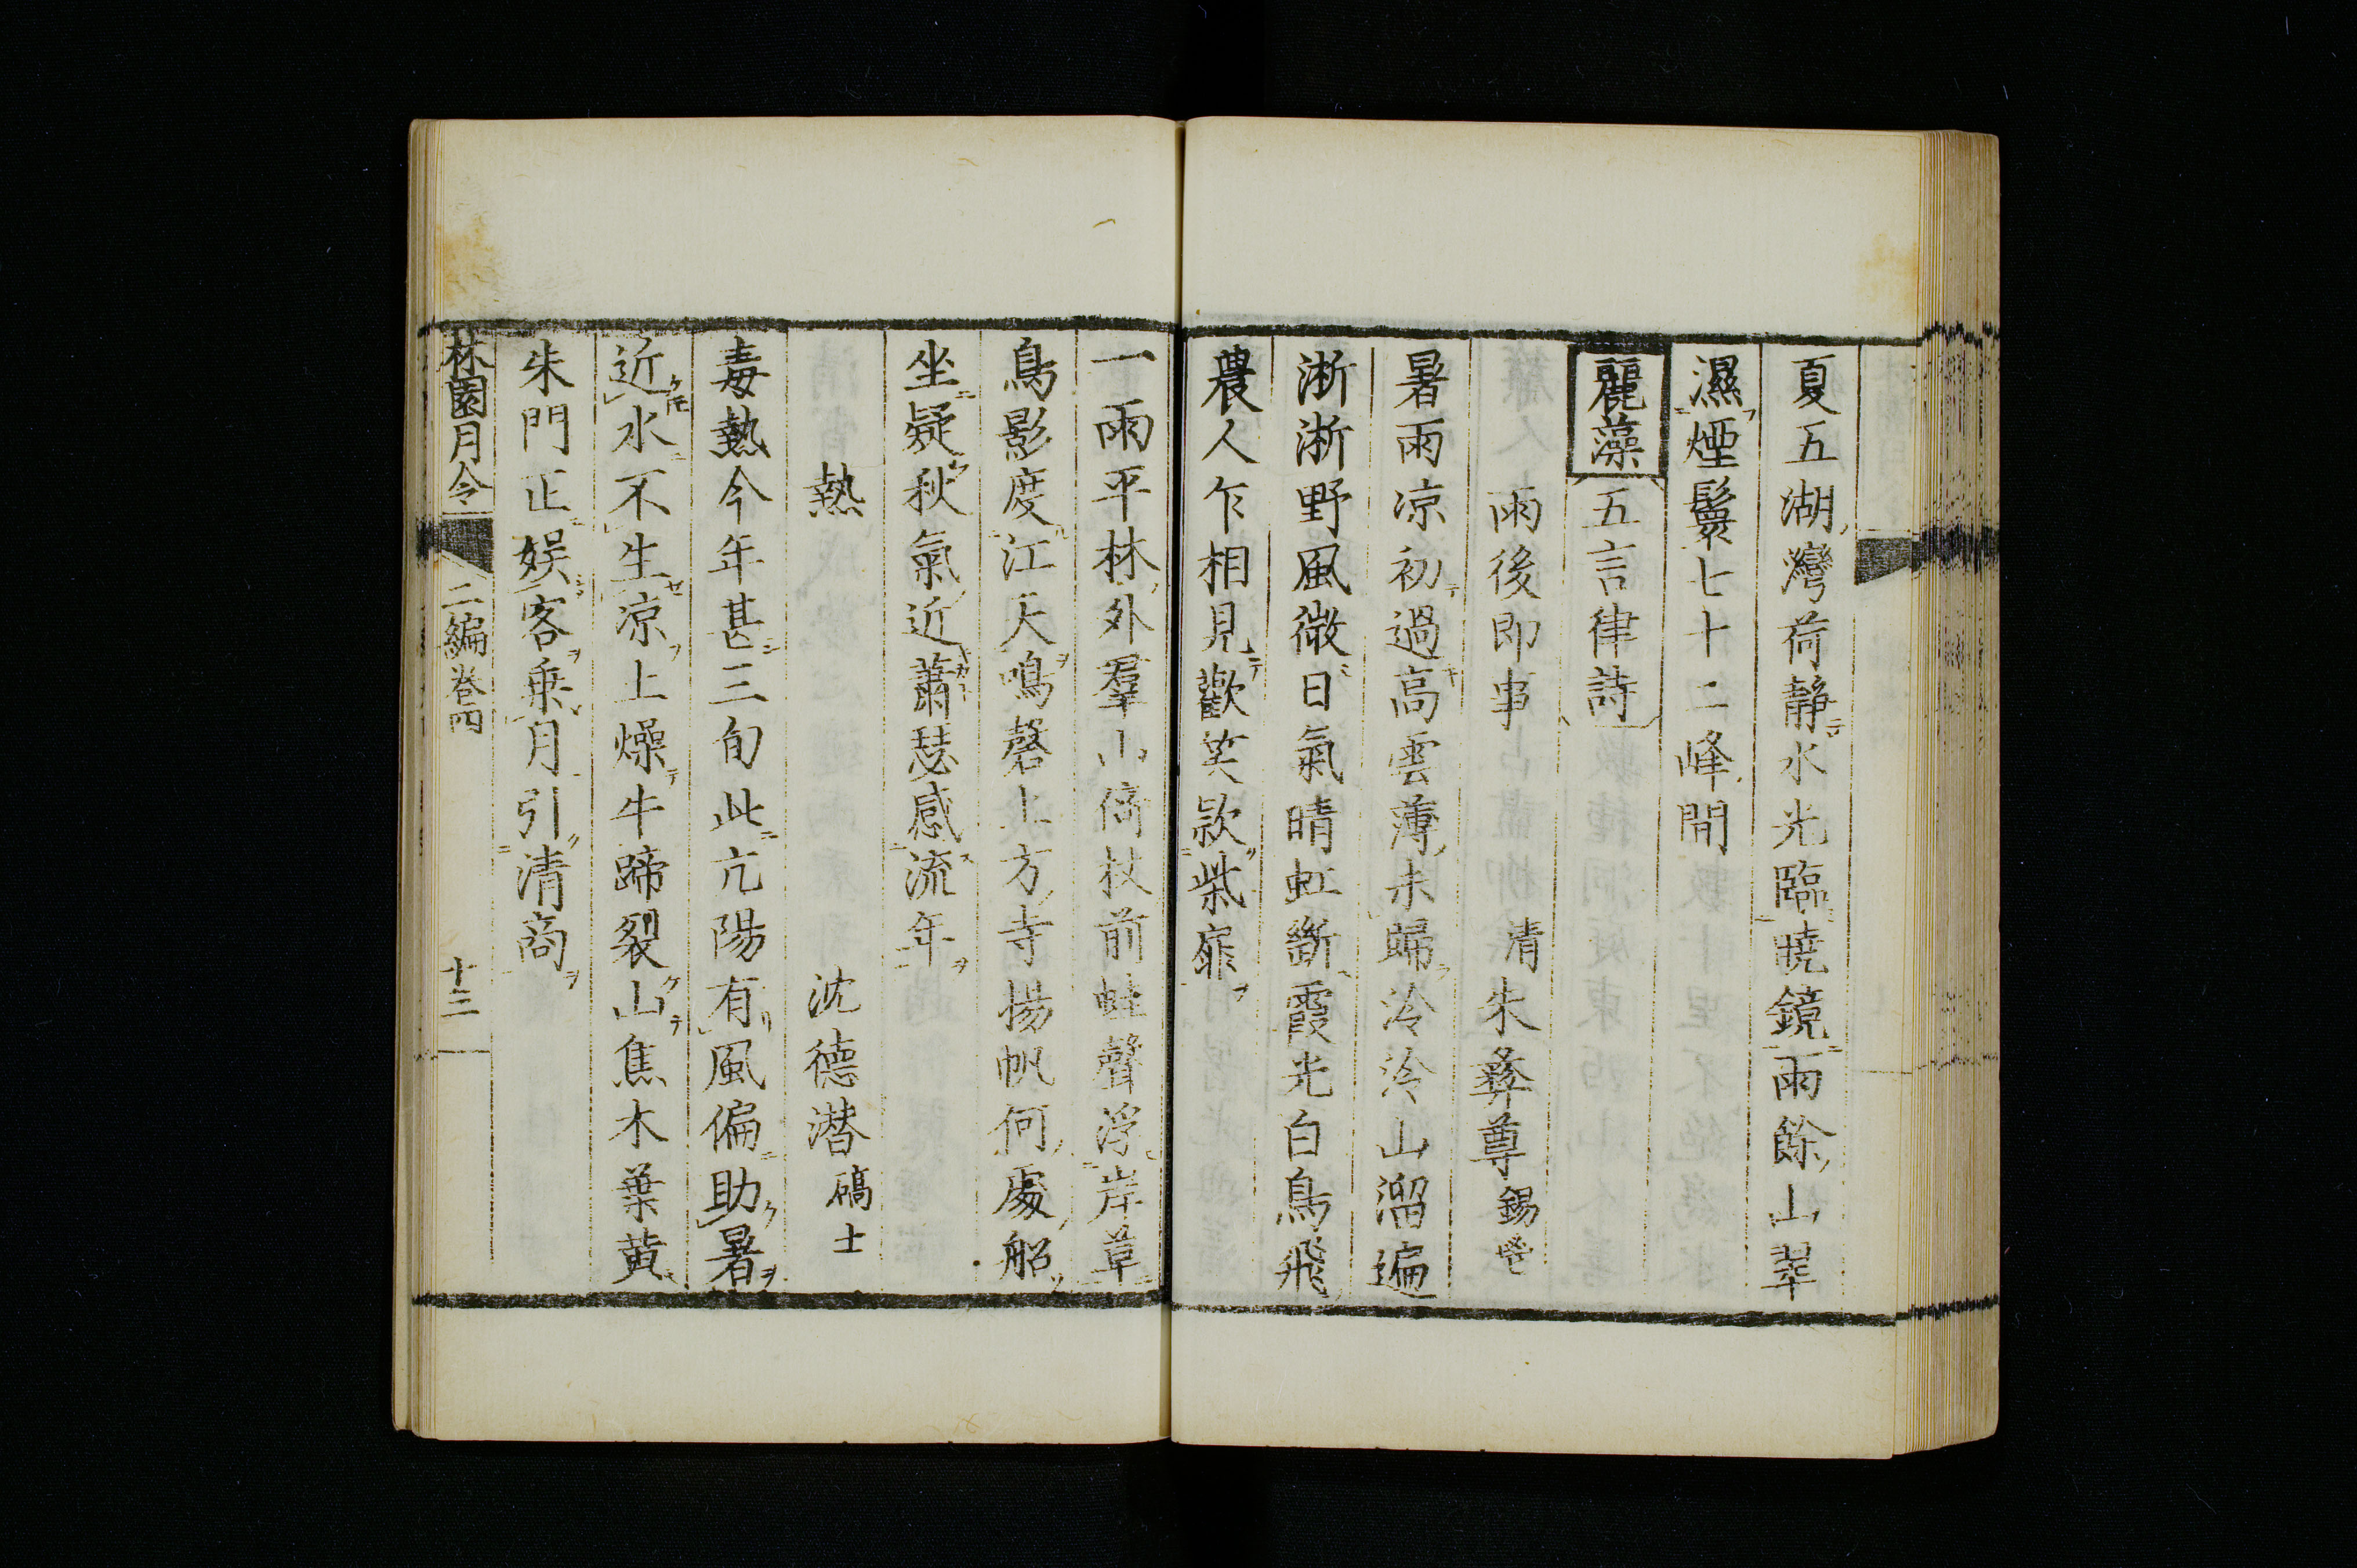 夏五湖灣荷靜水光臨曉鏡雨餘山翠
濕煙鬟七十二峰間
麗藻 五言律詩
雨後即事 清 朱彝尊 錫鬯
暑雨凉初過高雲薄未歸泠泠山溜遍
淅淅野風微日氣晴虹斷霞光白鳥飛
農人乍相見歡笑款柴扉
一雨平林外羣山倚杖前蛙聲浮岸草
鳥影度江天鳴磬上方寺揚帆何處船
坐疑秋氣近蕭瑟感流年
熱 沈德潛 碻士
毒熱今年甚三旬此亢陽有風偏助暑
近水不生凉土燥牛蹄裂山焦木葉黄
朱門正娯客乗月引清商
林園月令 二編卷四 十三